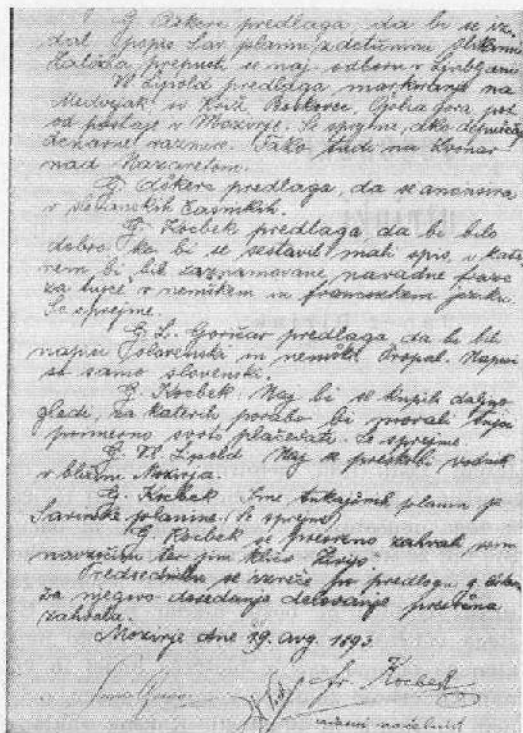 G. Aškerc predlaga, da bi se iz-
dal popis Sav. planin z
prepusti se maj. odboru v Ljubljani
V. Lipold predlaga markiranje na
Medvejak sv. Križ Boskovec, Golta gora pot
od postaje v Mozirje. Se sprejme, ako dopuščajo
denarne razmere. Tako tudi na
nad Nazaretom.
G. Aškerc predlaga, da se anonsira
v slovanskih časnikih.
G. Kocbek predlaga, da bi bilo
dobro ko bi se sestavil mali spis, v kate-
rem bi bile zaznamovane navadne fraze
za tujce v nemškem in francoskem jeziku.
Se sprejme.
G. L. Goričar predlaga, da bi bili
napisi slovenski in nemški. Propal. Napisi
so samo slovenski.
G. Kocbek. Naj bi se kupili daljno
gledi, za katerih porabo bi morali tujci
primerno svoto plačevati. Se sprejme.
G. V. Lipold Naj se preskrbi vodnik
v bližini Mozirja.
G. Kocbek Ime tukajšnih planin je
Savinske planine. (Se sprejme)
G. Kocbek se presrčno zahvali vsem
navzočim ter jim kliče "Živijo"
Predsedniku se izreče po predlogu g.
za njegovo dosedanje delovanje presrčna
zahvala.
Mozirje dne 29. avg. 1893
Fr. Kocbek
načelnik